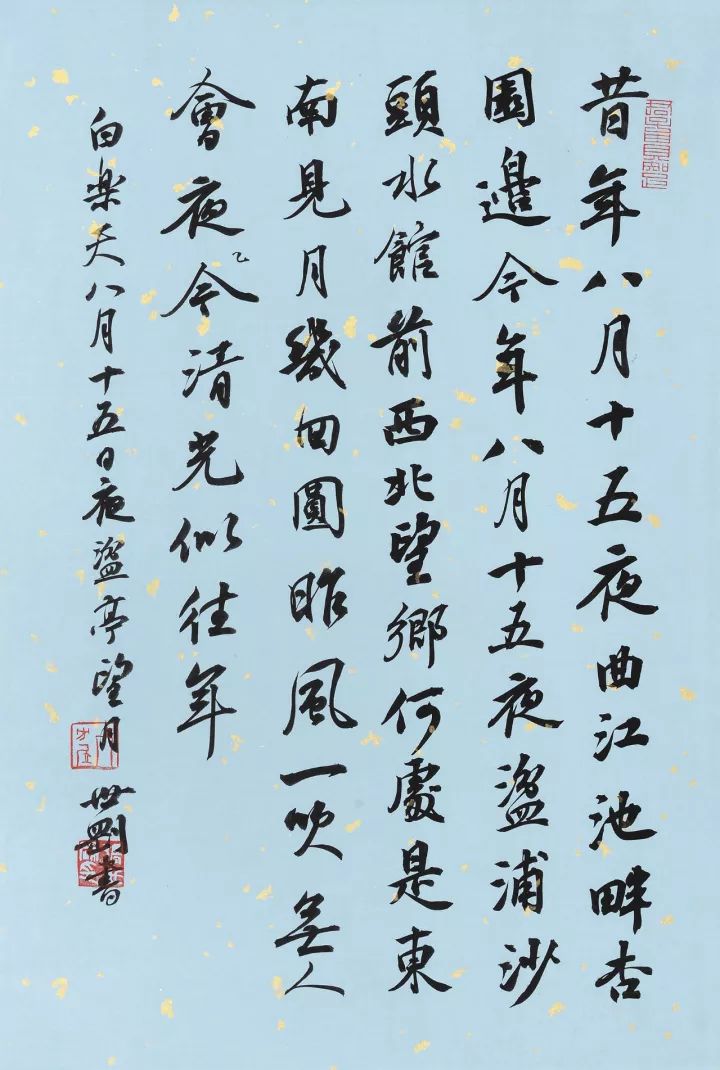 昔年八月十五夜曲江池畔杏
園邊今年八月十五夜湓浦沙
頭水館前西北望鄉何處是東
南見月幾回圓昨風一吹無人
會夜今清光似往年
白楽天八月十五日夜湓亭望月 世書